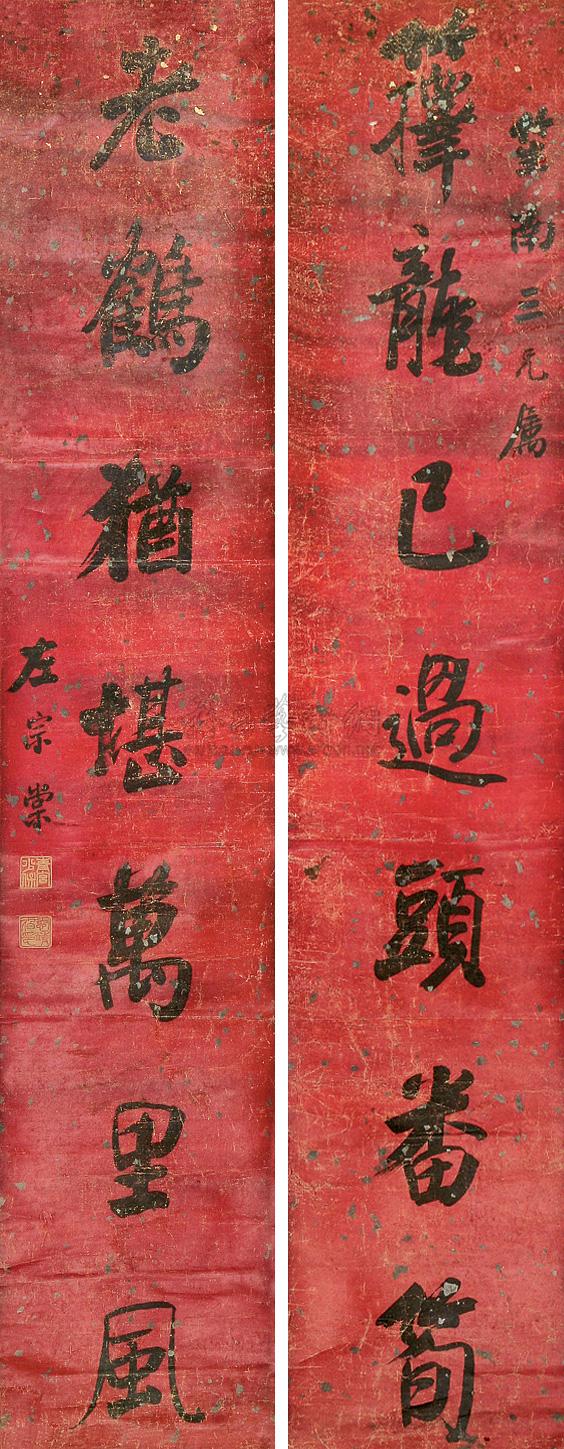 南三兄屬
籜龍已過頭番筍
老鶴猶堪萬里風
左宗棠